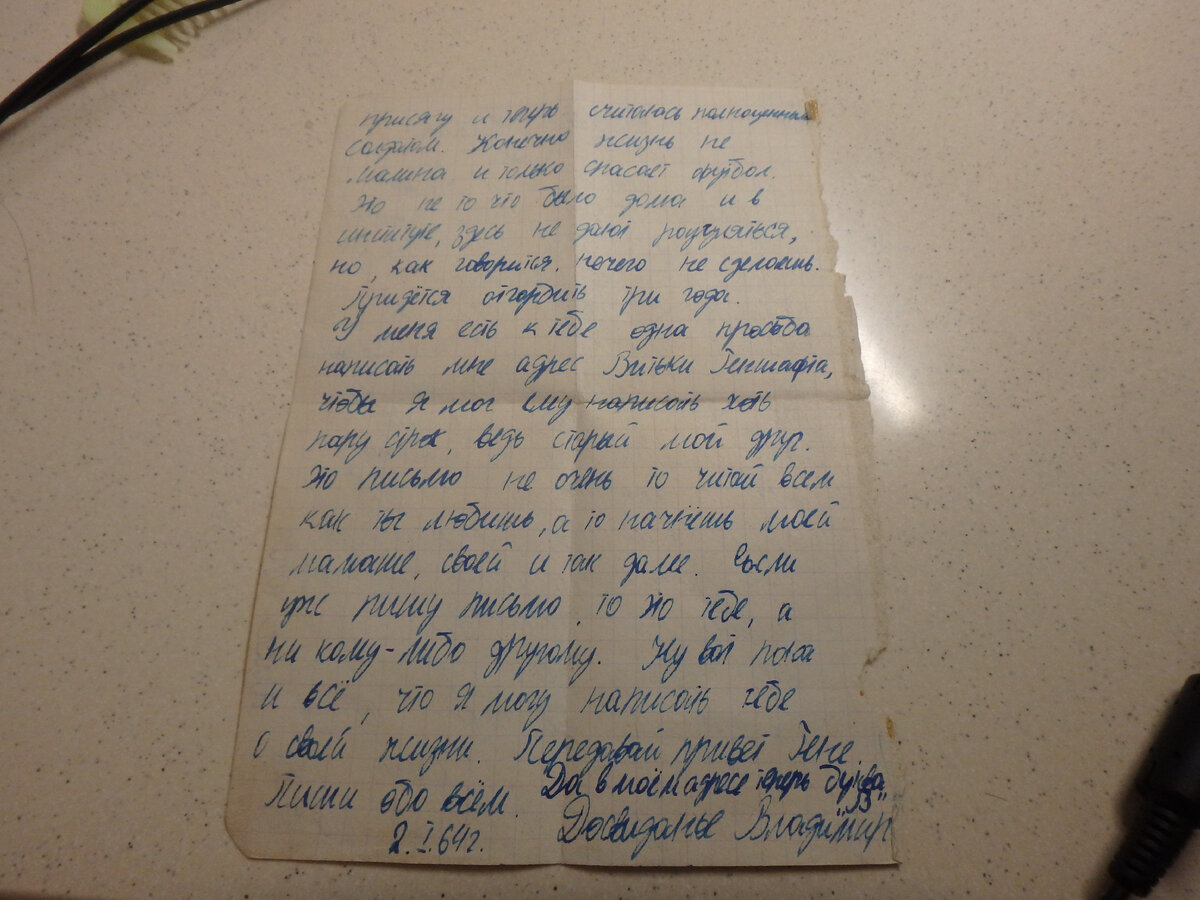 присягу и теперь считаюсь полноценным
солдатом. Конечно жизнь не
малина и только спасает футбол.
Это не то что было дома и в
институте, здесь не дают разгуляться,
но, как говорится, ничего не сделаешь.
Придётся отгорбить три года.
У меня есть к тебе одна просьба
написать мне адрес Витьки
чтобы я мог ему написать хоть
пару строк, ведь старый мой друг.
Это письмо не очень то читай всем
как ты любишь, а то начнёшь моей
мамаше, своей и так дале. Если
уж пишу письмо, то это тебе, а
ни кому-либо другому. Ну вот пока
и всё, что я могу написать тебе
о своей жизни. Передавай привет Гене.
Пиши обо всём. Да в моём адресе теперь буква
2.I.64г. Досвиданье Владимир